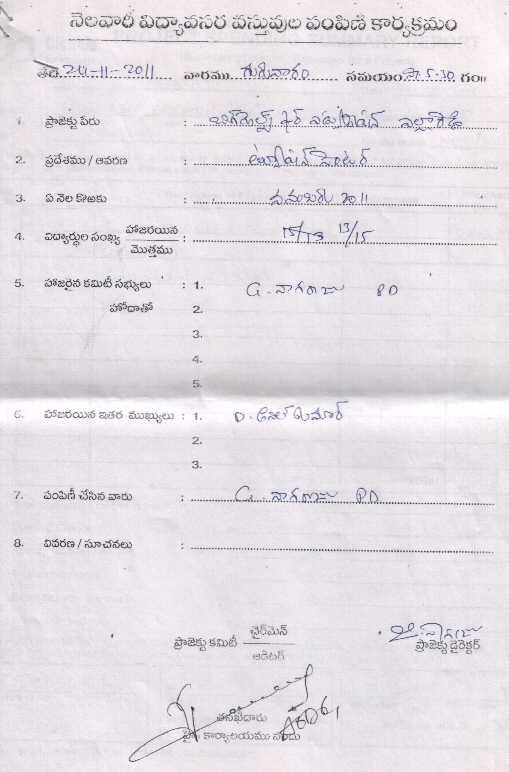 నెలవారీ విద్యావసర వస్తువుల పంపిణి కార్యక్రమం
తేది. 24-11-2011 వారము గురువారం సమయం సా. 5-30 గం॥
1. ప్రాజెక్టు పేరు :
2. ప్రదేశము / ఆవరణ :
3. ఏ నెల కొఱకు : నవంబరు 2011
4. విద్యార్థుల సంఖ్య హాజరయిన / మొత్తము : 13/15
5. హాజరైన కమిటీ సభ్యులు : 1. G. నాగరాజు PD
హోదాతో 2.
3.
4.
5.
6. హాజరయిన ఇతర ముఖ్యులు : 1. D. అనిల్ కుమార్
2.
3.
7. పంపిణీ చేసిన వారు : G. నాగరాజు PD
8. వివరణ / సూచనలు :
ప్రాజెక్టు కమిటీ ఛైర్‌మెన్ / ఆడిటర్
జి. నాగరాజు
ప్రాజెక్టు డైరెక్టర్
తనిఖీదారు
కార్యాలయము నందు